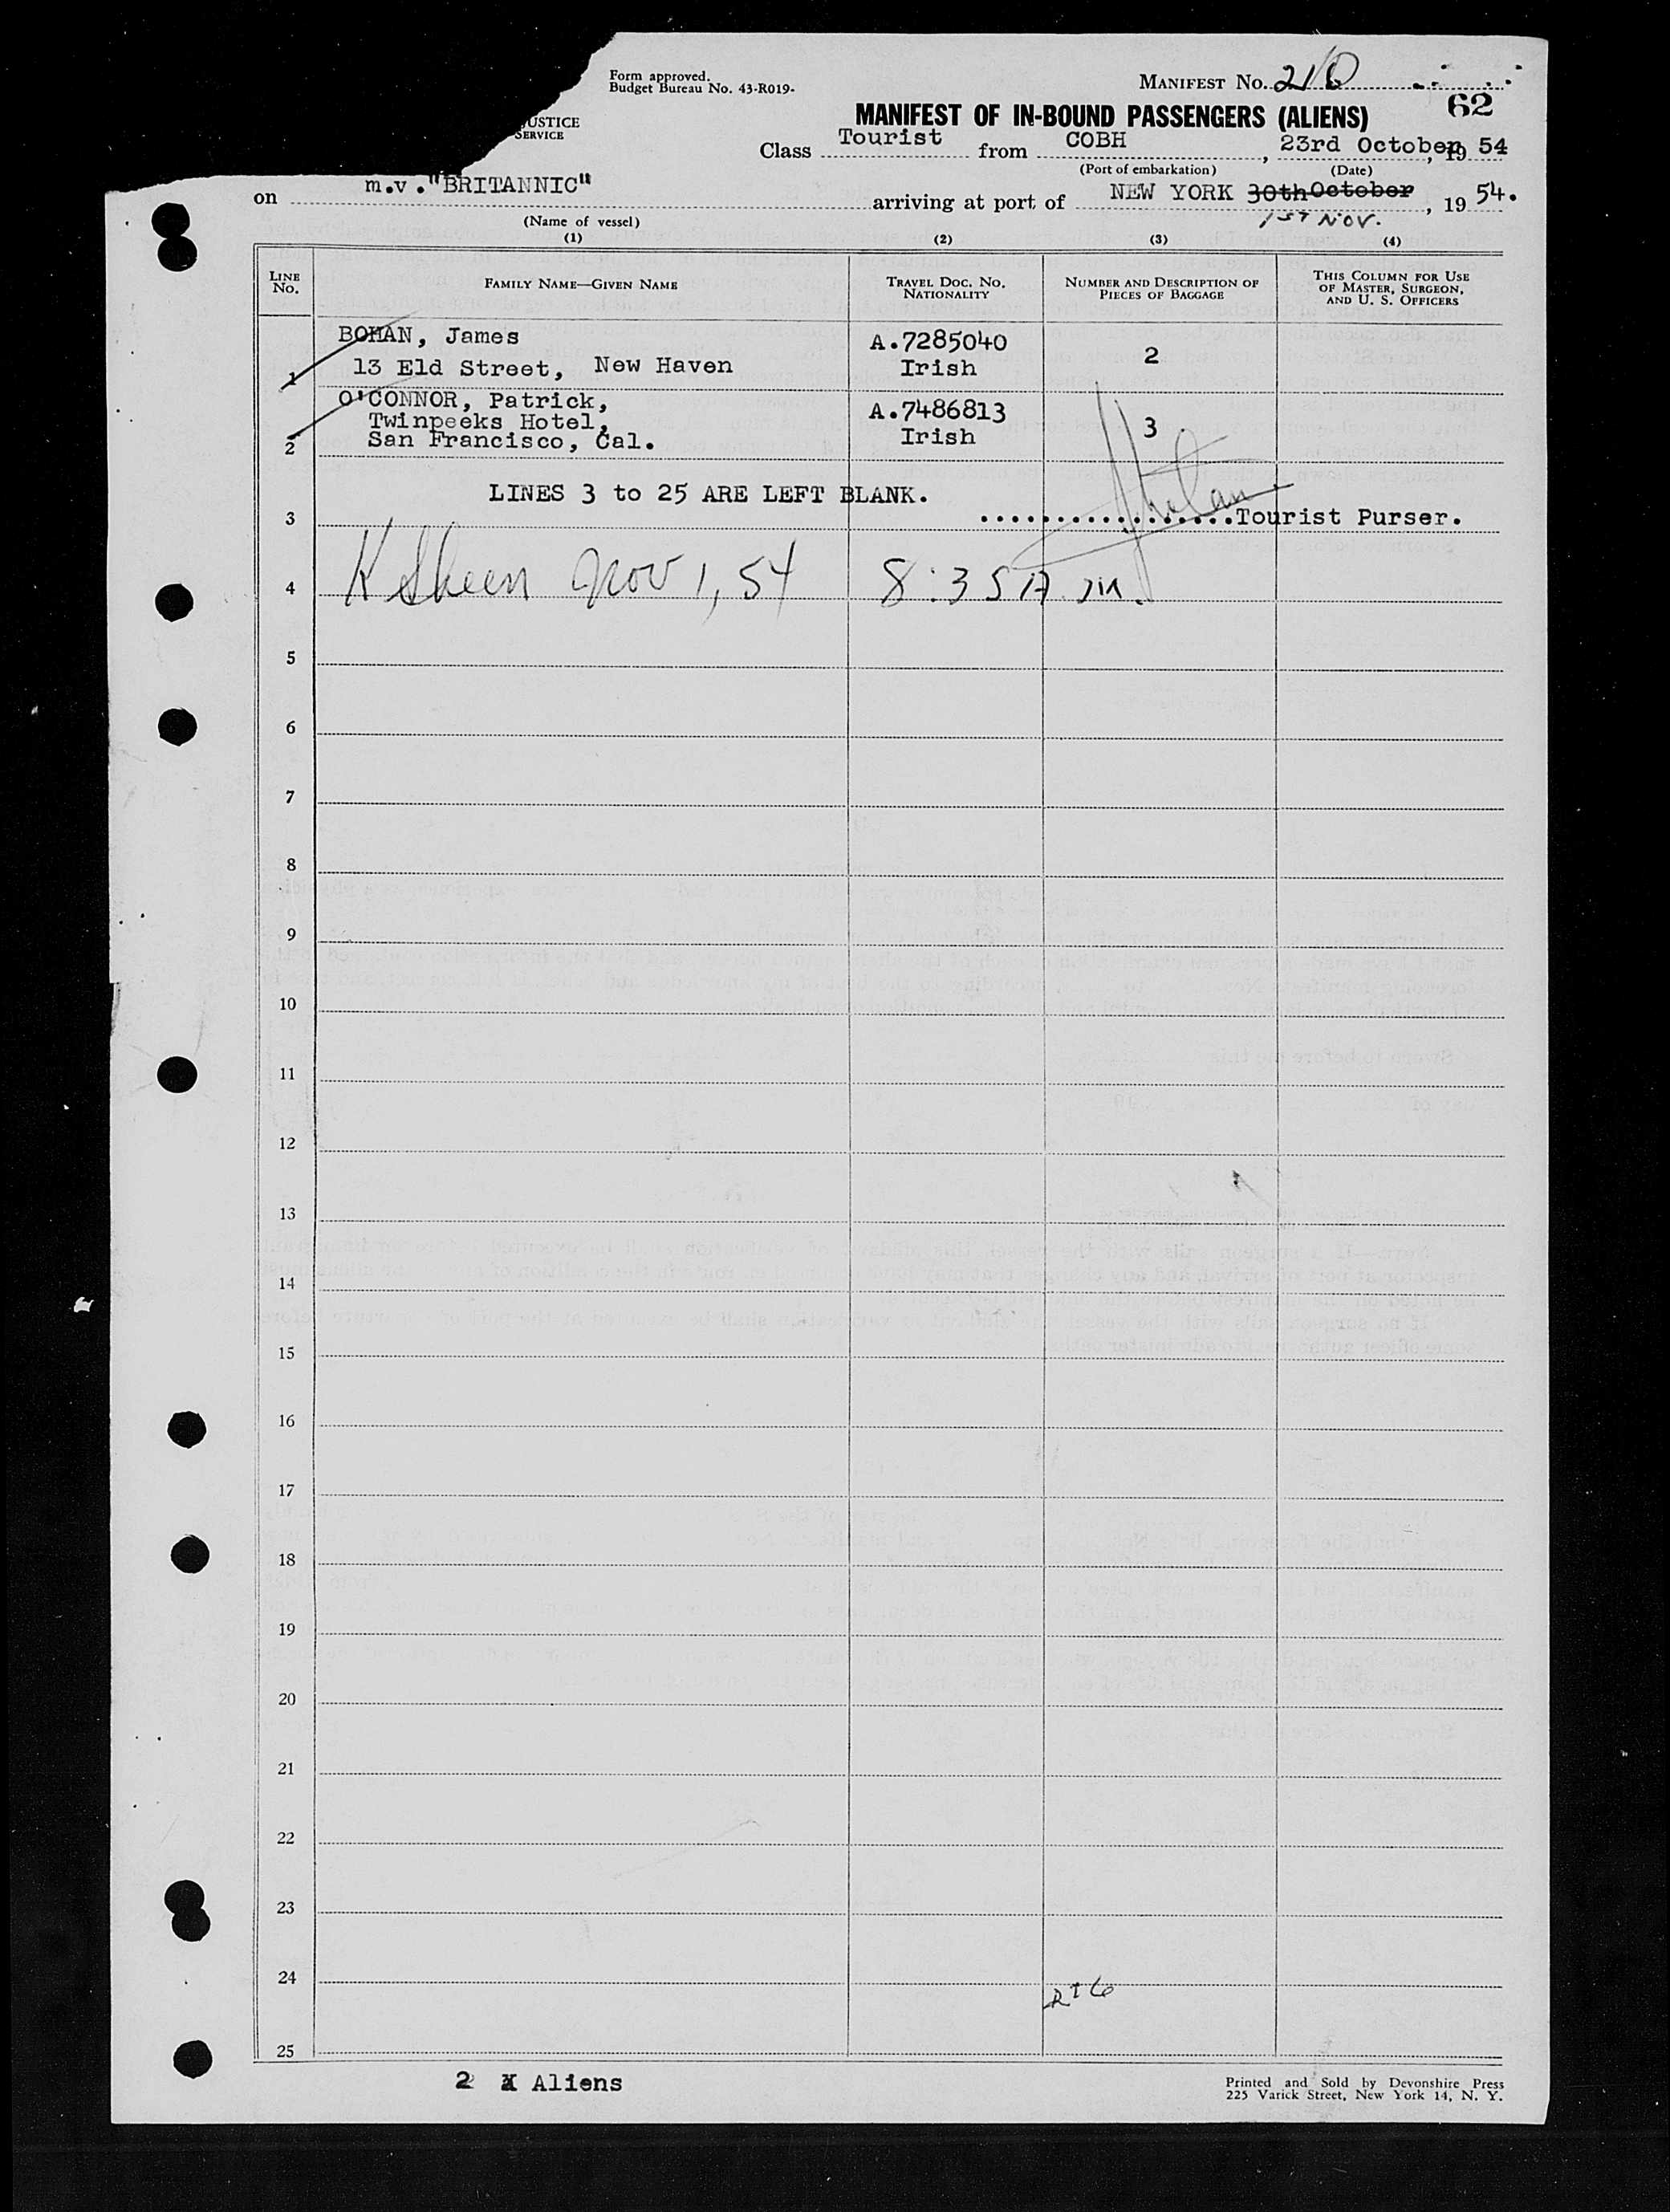 Form approved.
Budget Bureau No. 43-R019-
MANIFEST No. 210
62
USTICE
SERVICE
MANIFEST OF IN-BOUND PASSENGERS (ALIENS)
Class Tourist from COBH, 23rd October, 19 54
(Port of embarkation) (Date)
on m.v."BRITANNIC" arriving at port of NEW YORK 30th October, 19 54.
1st Nov.
(Name of vessel)
(1) (2) (3) (4)
LINE No. FAMILY NAME—GIVEN NAME TRAVEL DOC. No. NATIONALITY NUMBER AND DESCRIPTION OF PIECES OF BAGGAGE THIS COLUMN FOR USE OF MASTER, SURGEON, AND U. S. OFFICERS
BOHAN, James A.7285040
1 13 Eld Street, New Haven Irish 2
O'CONNOR, Patrick, A.7486813
Twinpeeks Hotel, 3
2 San Francisco, Cal. Irish
LINES 3 to 25 ARE LEFT BLANK.
3 ..................Tourist Purser.
4 K Sheen Nov 1, 54 8:35 A.M.
5
6
7
8
9
10
11
12
13
14
15
16
17
18
19
20
21
22
23
24
25
2 Aliens
Printed and Sold by Devonshire Press
225 Varick Street, New York 14, N. Y.